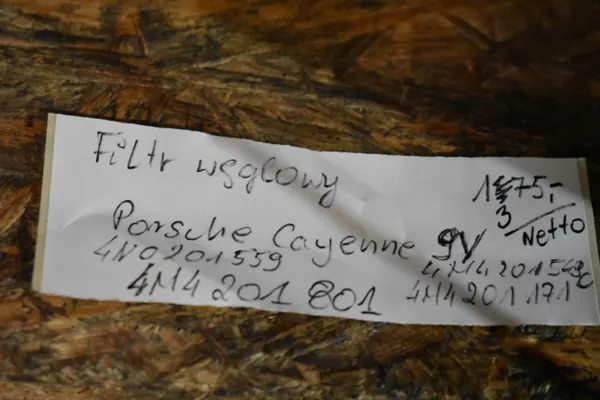 Filtr węglowy
75,-
Netto
Porsche Cayenne 9Y
4N0201559
4M4201549C
4M4 201 801
4M4201171